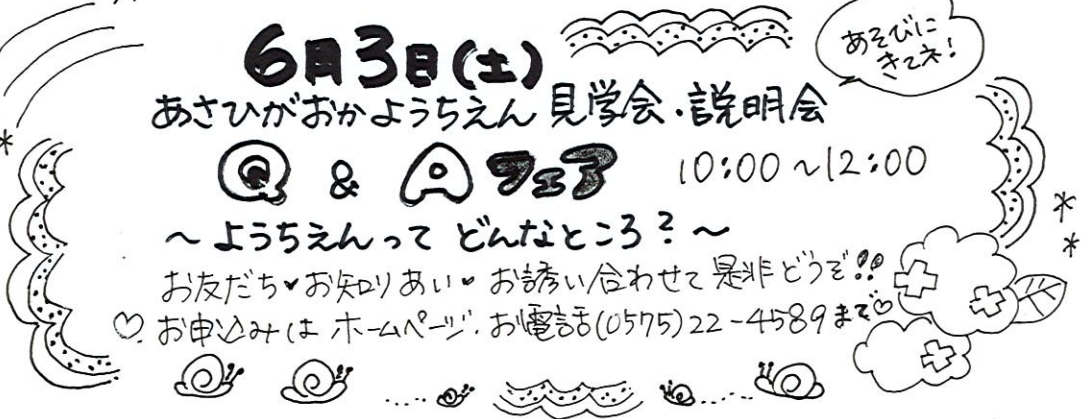 6月3日(土)
あそびに
きてネ!
あさひがおかようちえん 見学会・説明会
Q & A フェア 10:00~12:00
~ようちえんって どんなところ?~
お友だち♥お知りあい♥ お誘い合わせて 是非どうぞ!!
♡お申込みは ホームページ.お電話(0575)22-4589まで♡